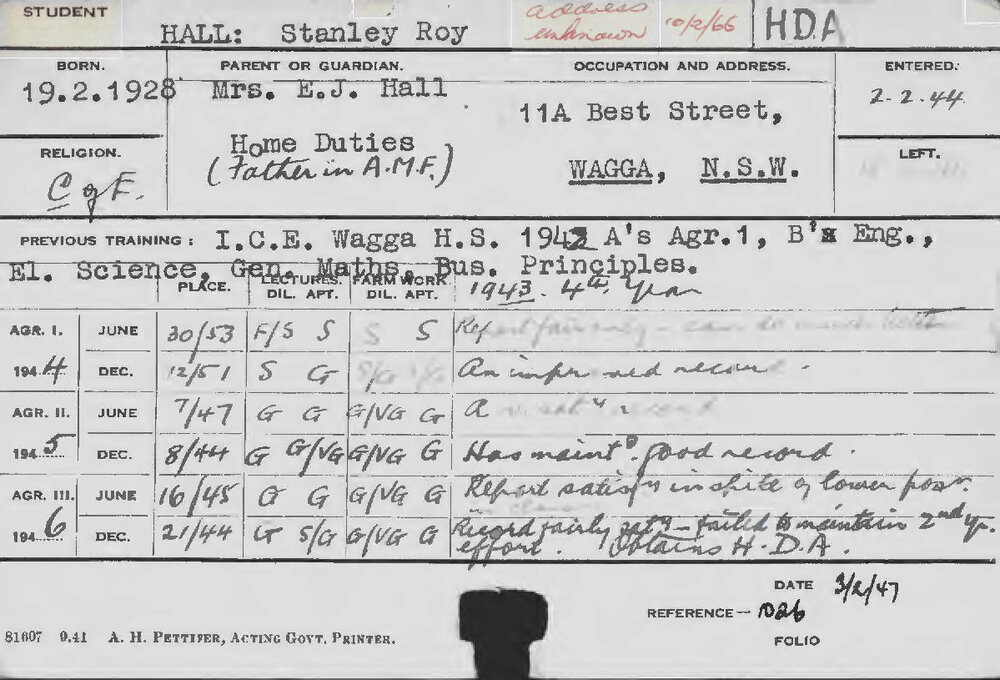 STUDENT
HALL: Stanley Roy
address unknown 10/2/66
HDA
BORN.
19.2.1928
PARENT OR GUARDIAN.
Mrs. E.J. Hall
Home Duties
(Father in A.M.F.)
OCCUPATION AND ADDRESS.
11A Best Street,
WAGGA, N.S.W.
ENTERED:
2.2.44
RELIGION.
C of E.
LEFT.
PREVIOUS TRAINING: I.C.E. Wagga H.S. 1943 A's Agr.1, B's Eng.,
El. Science, Gen. Maths, Bus. Principles.
1943. 4th Year
PLACE. LECTURES. DIL. APT. FARM WORK DIL. APT.
AGR. I. JUNE 30/53 F/S S S S
1944 DEC. 12/51 S G An improved record.
AGR. II. JUNE 7/47 G G G/VG G A
1945 DEC. 8/44 G G/VG G/VG G Has maintd. good record.
AGR. III. JUNE 16/45 G G G/VG G Report satisfy in spite of lower posn.
1946 DEC. 21/44 G S/G G/VG G Record fairly saty – failed to maintain 2nd yr. effort. Obtains H.D.A.
DATE 3/2/47
REFERENCE— D26
FOLIO
81607 9.41 A. H. PETTIFER, ACTING GOVT. PRINTER.